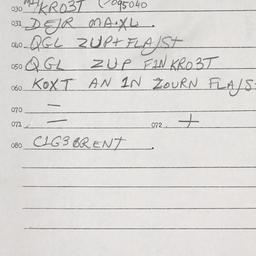 030 KRO3T 095040
031 DEJR MA.XU.
040 QGL ZUP+FLAJST
050 QGL ZUP FIN KRO3T
060 KOXT AN IN ZOURN FLAJS
070 —
071 — 072 +
080 C1G3 BRENT.